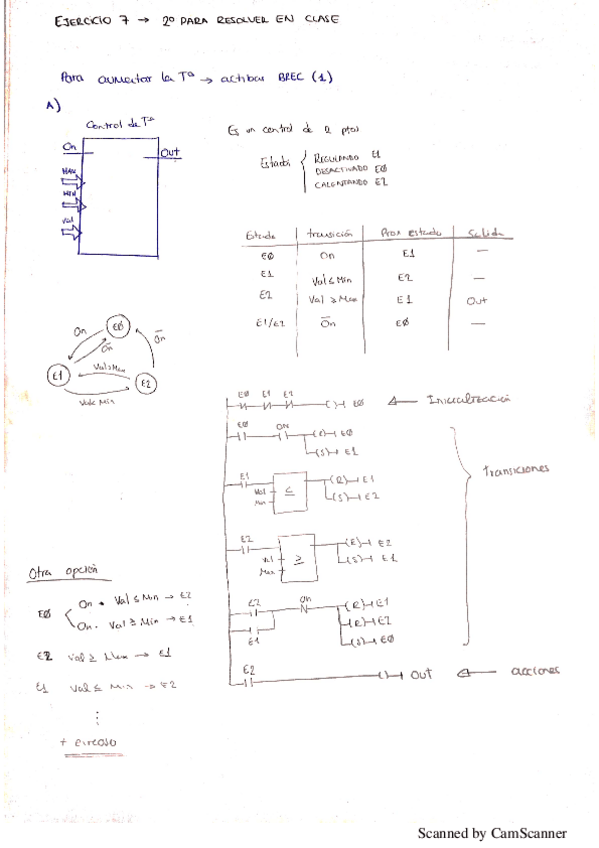 EJERCICIO 7 → 2º PARA RESOLVER EN CLASE
Para aumentar la Tª → activar BREC (1)
A)
Control de Tª
On
Out
MAX
MIN
Val
Es un control de 2 ptos
Estados
REGULANDO E1
DESACTIVADO E0
CALENTANDO E2
Estado transición Prox estado Salida
E0 On E1 —
E1 Val ≤ Min E2 —
E2 Val ≥ Max E1 Out
E1/E2 O̅n̅ E0 —
E0
On
O̅n̅
O̅n̅
Val ≥ Max
E1
E2
Val ≤ Min
E0 E1 E2
( ) E0 ← Inicialización
E0 ON
(R) E0
(S) E1
transiciones
E1
Val
Min
≤
(R) E1
(S) E2
E2
Val
Max
≥
(R) E2
(S) E1
E2 On
E1
(R) E1
(R) E2
(S) E0
E2
( ) OUT ← acciones
Otra opción
E0
On · Val ≤ Min → E2
On · Val ≥ Min → E1
E2 Val ≥ Max → E1
E1 Val ≤ Min → E2
⋮
Scanned by CamScanner